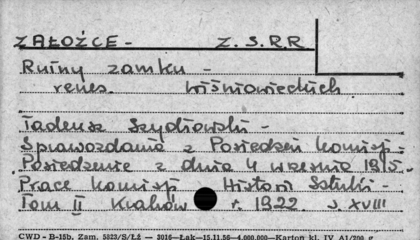 ZAŁOŻCE - Z.S.R.R
Ruiny zamku -
renes. Wiśniowieckich
Tadeusz Szydłowski -
Sprawozdania z Posiedzeń Komisji:
Posiedzenie z dnia 4 wrzesnia 1915.-
Prace Komisji Historii Sztuki -
Tom II Kraków r. 1922. s. XVIII
CWD - B-15b. Zam. 5823/S/ŁŻ — 3016—Łak—15.11.56—4.000.000—Karton kl. IV A1/200 g